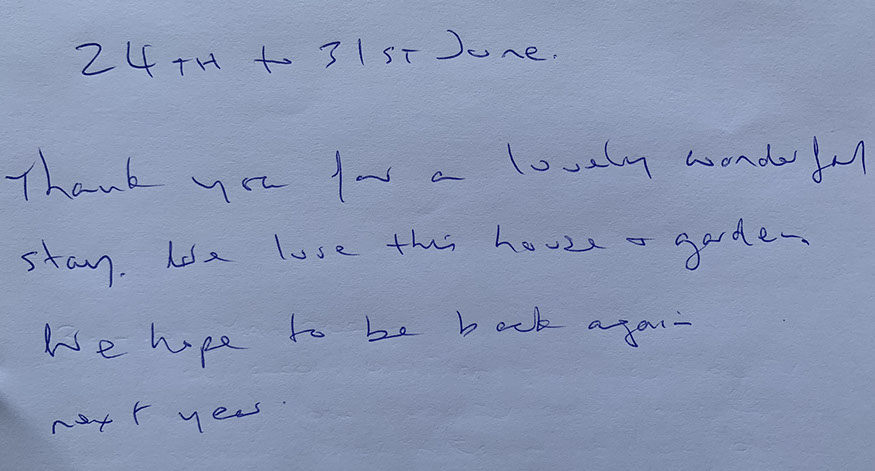 24TH to 31ST June.
Thank you for a lovely wonderful
stay. We love this house + garden.
We hope to be back again
next year.